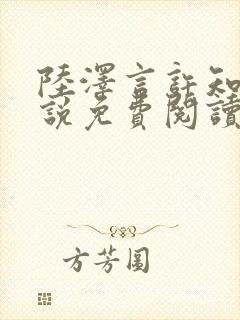 陸澤言許知
說免費閱讀
方芳圓